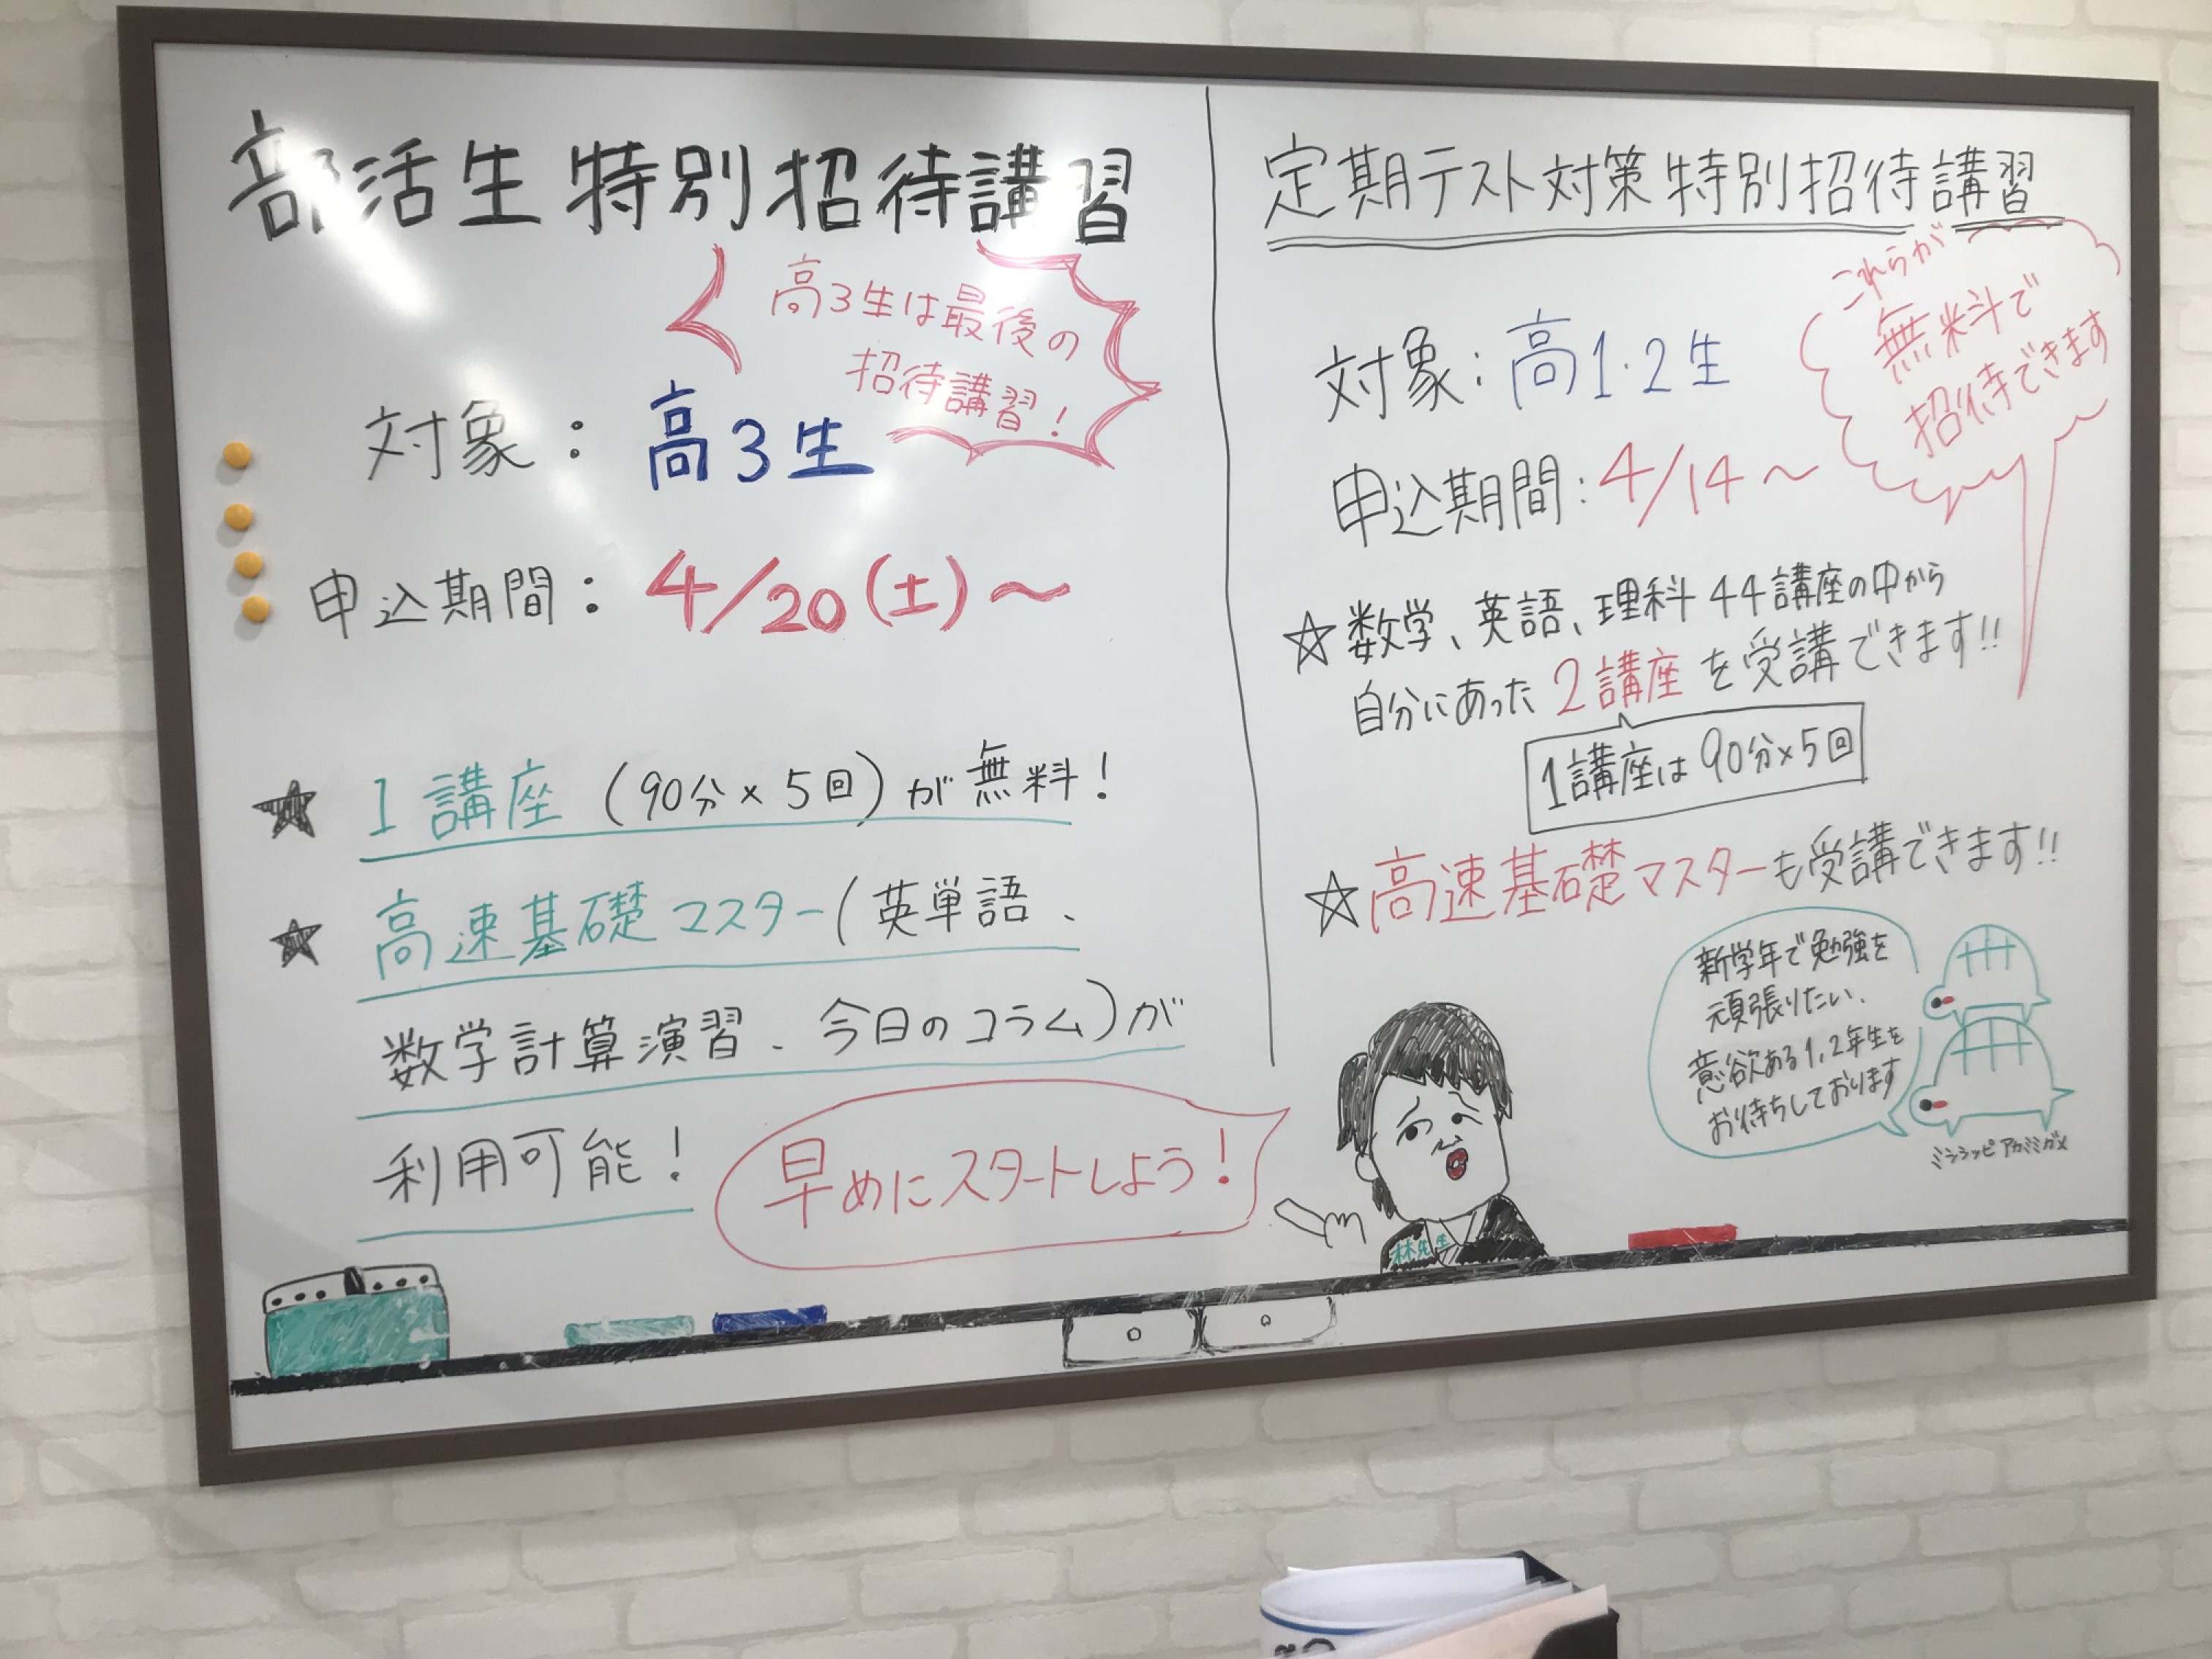 部活生特別招待講習
高3生は最後の
招待講習！
対象：高3生
申込期間：4/20(土)～
★ 1講座（90分×5回）が無料！
★ 高速基礎マスター(英単語、
数学計算演習、今日のコラム)が
利用可能！
早めにスタートしよう！
定期テスト対策特別招待講習
これらが
無料で
招待できます
対象：高1・2生
申込期間：4/14～
☆数学、英語、理科44講座の中から
自分にあった2講座を受講できます!!
1講座は90分×5回
☆高速基礎マスターも受講できます!!
新学年で勉強を
頑張りたい、
意欲ある1,2年生を
お待ちしております
ミシシッピアカミミガメ
林先生